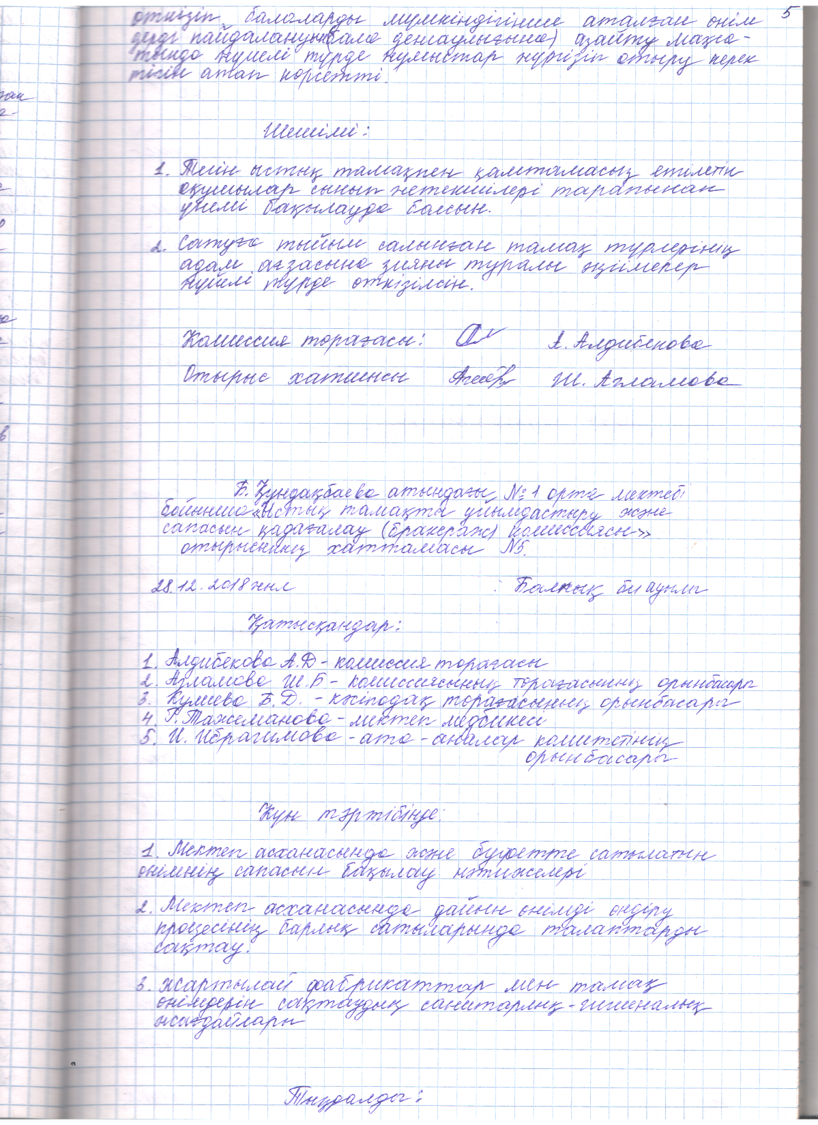 5
өткізіп, балаларды мүмкіндігінше аталған өнім
дерді пайдалануын(бала денсаулығына) азайту мақса-
тында жүйелі түрде жұмыстар жүргізіп отыру керек
тігін атап көрсетті.
Шешімі:
1. Тегін ыстық тамақпен қамтамасыз етілетін
оқушылар сынып жетекшілері тарапынан
үнемі бақылауда болсын.
2. Сатуға тыйым салынған тамақ түрлерінің
адам ағзасына зияны туралы әңгімелер
жүйелі түрде өткізілсін.
Комиссия төрағасы: А. Алдибекова
Отырыс хатшысы Ш. Агламова
Б. Қундақбаева атындағы №1 орта мектебі
бойынша «Ыстық тамақты ұйымдастыру және
сапасын қадағалау (бракераж) комиссиясы»
отырысының хаттамасы №5.
28.12.2018 жыл Балпық би ауылы
Қатысқандар:
1. Алдибекова А.Д - комиссия төрағасы
2. Агламова Ш.Б - комиссиясының төрағасының орынбасары
3. Кумиева Б.Д. - кәсіподақ төрағасының орынбасары
4. Г. Тажиманова - мектеп медбикесі
5. И. Ибрагимова - ата-аналар комитетінің
орынбасары
Күн тәртібінде
1. Мектеп асханасында және буфетте сатылатын
өнімнің сапасын бақылау нәтижелері
2. Мектеп асханасында дайын өнімді өндіру
процесінің барлық сатыларында талаптарды
сақтау.
3. Жартылай фабрикаттар мен тамақ
өнімдерін сақтаудың санитарлық-гигиеналық
жағдайлары
Тыңдалды: